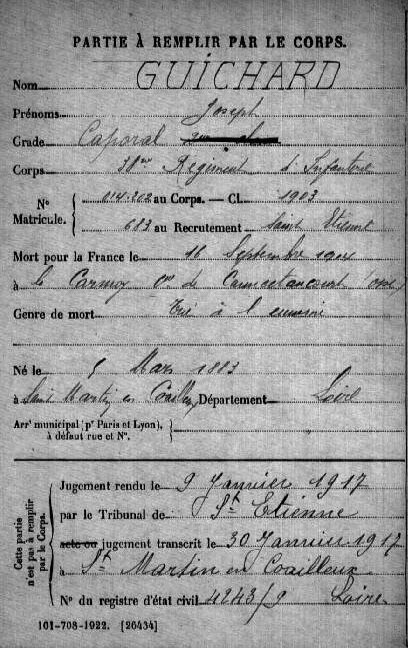 PARTIE À REMPLIR PAR LE CORPS.
Nom GUICHARD
Prénoms Joseph
Grade Caporal
Corps 38me Régiment d'Infanterie
N° Matricule. { 014.202 au Corps. — Cl. 1903
683 au Recrutement Saint Etienne
Mort pour la France le 16 Septembre 1914
à le Carmoy Cne de Cannectancourt (Oise)
Genre de mort Tué à l'ennemi
Né le 5 Mars 1883
à Saint Martin en Coailleux Département Loire
Arrt municipal (pr Paris et Lyon), à défaut rue et N°. {
Cette partie n'est pas à remplir par le Corps.
Jugement rendu le 9 Janvier 1917
par le Tribunal de St Etienne
acte ou jugement transcrit le 30 Janvier 1917
à St Martin en Coailleux
N° du registre d'état civil 4243/9 Loire
101-708-1922. [26434]